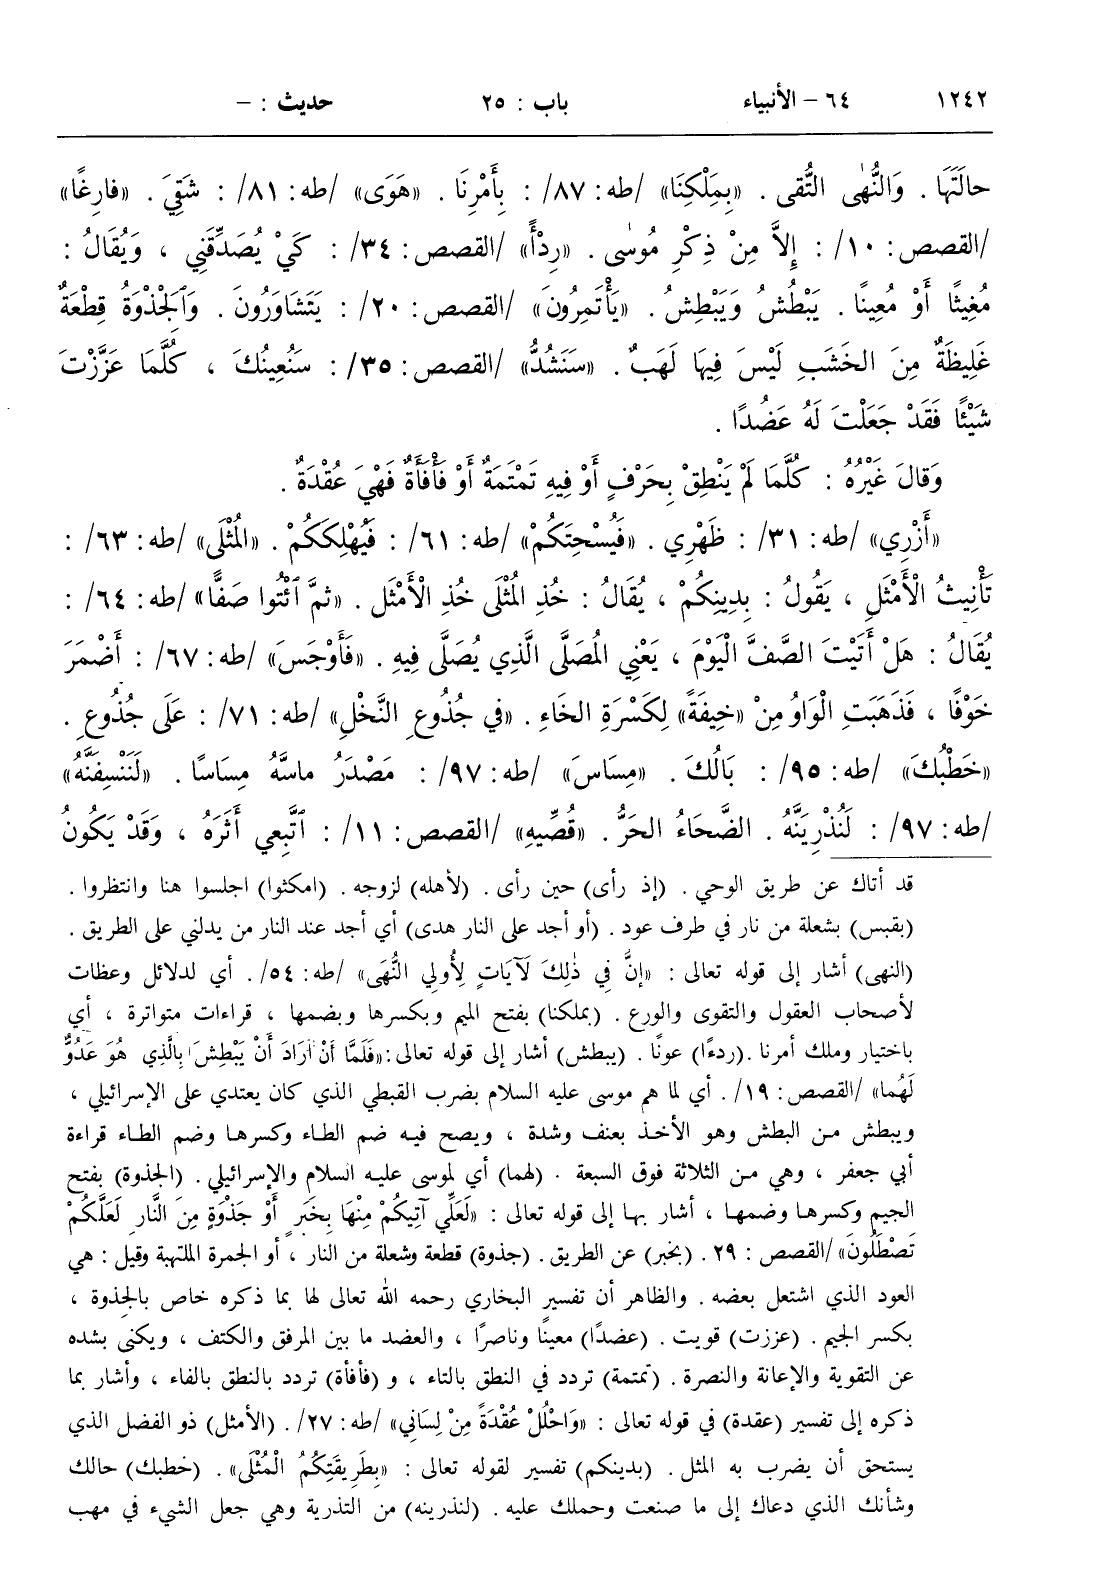 ١٢٤٢ ٦٤ - الأنبياء باب : ٢٥ حديث : -
حالَتَهَا . وَالنُّهٰى التُّقى . «بِمَلْكِنَا» /طه: ٨٧/ : بِأَمْرِنَا . «هَوَى» /طه: ٨١/ : شَقِيَ . «فارِغًا»
/القصص: ١٠/ : إِلاَّ مِنْ ذِكْرِ مُوسٰى . «رِدْأً» /القصص: ٣٤/ : كَيْ يُصَدِّقَنِي ، وَيُقَالُ :
مُغِيثًا أَوْ مُعِينًا . يَبْطُشُ وَيَبْطِشُ . «يَأْتَمِرُونَ» /القصص: ٢٠/ : يَتَشَاوَرُونَ . وَٱلْجَذْوَةُ قِطْعَةٌ
غَلِيظَةٌ مِنَ الخَشَبِ لَيْسَ فِيهَا لَهَبٌ . «سَنَشُدُّ» /القصص: ٣٥/ : سَنُعِينُكَ ، كُلَّمَا عَزَّزْتَ
شَيْئًا فَقَدْ جَعَلْتَ لَهُ عَضُدًا .
وَقالَ غَيْرُهُ : كُلَّمَا لَمْ يَنْطِقْ بِحَرْفٍ أَوْ فِيهِ تَمْتَمَةٌ أَوْ فَأْفَأَةٌ فَهْيَ عُقْدَةٌ .
«أَزْرِي» /طه: ٣١/ : ظَهْرِي . «فَيُسْحِتَكُمْ» /طه: ٦١/ : فَيُهْلِكَكُمْ . «المُثْلَى» /طه: ٦٣/ :
تَأْنِيثُ الْأَمْثَلِ ، يَقُولُ : بِدِينِكُمْ ، يُقَالُ : خُذِ المُثْلَى خُذِ الْأَمْثَلَ . «ثمَّ ٱئْتُوا صَفًّا» /طه: ٦٤/ :
يُقَالُ : هَلْ أَتَيْتَ الصَّفَّ الْيَوْمَ ، يَعْنِي المُصَلَّى الَّذِي يُصَلَّى فِيهِ . «فَأَوْجَسَ» /طه: ٦٧/ : أَضْمَرَ
خَوْفًا ، فَذَهَبَتِ الْوَاوُ مِنْ «خِيفَةً» لِكَسْرَةِ الخَاءِ . «في جُذُوعِ النَّخْلِ» /طه: ٧١/ : عَلَى جُذُوعِ .
«خَطْبُكَ» /طه: ٩٥/ : بَالُكَ . «مِسَاسَ» /طه: ٩٧/ : مَصْدَرُ ماسَّهُ مِسَاسًا . «لَنَنْسِفَنَّهُ»
/طه: ٩٧/ : لَنُذْرِيَنَّهُ . الضَّحَاءُ الحَرُّ . «قُصِّيهِ» /القصص: ١١/ : ٱتَّبِعِي أَثَرَهُ ، وَقَدْ يَكُونُ
قد أتاك عن طريق الوحي . (إذ رأى) حين رأى . (لأهله) لزوجه . (امكثوا) اجلسوا هنا وانتظروا .
(بقبس) بشعلة من نار في طرف عود . (أو أجد على النار هدى) أي أجد عند النار من يدلني على الطريق .
(النهى) أشار إلى قوله تعالى : «إنَّ فِي ذٰلِكَ لَآيَاتٍ لِأُولِي النُّهَى» /طه: ٥٤/. أي لدلائل وعظات
لأصحاب العقول والتقوى والورع . (بملكنا) بفتح الميم وبكسرها وبضمها ، قراءات متواترة ، أي
باختيار وملك أمرنا .(ردءًا) عونًا . (يبطش) أشار إلى قوله تعالى: «فَلَمَّا أَنْ أَرَادَ أَنْ يَبْطِشَ بِالَّذِي هُوَ عَدُوٌّ
لَهُما» /القصص: ١٩/ . أي لما هم موسى عليه السلام بضرب القبطي الذي كان يعتدي على الإسرائيلي ،
ويبطش من البطش وهو الأخذ بعنف وشدة ، ويصح فيه ضم الطاء وكسرها وضم الطاء قراءة
أبي جعفر ، وهي من الثلاثة فوق السبعة . (لهما) أي لموسى عليه السلام والإسرائيلي . (الجذوة) بفتح
الجيم وكسرها وضمها ، أشار بها إلى قوله تعالى : «لَعَلِّي آتِيكُمْ مِنْهَا بِخَبَرٍ أَوْ جَذْوَةٍ مِنَ النَّارِ لَعَلَّكُمْ
تَصْطَلُونَ» /القصص : ٢٩ . (بخبر) عن الطريق . (جذوة) قطعة وشعلة من النار ، أو الجمرة الملتهبة وقيل : هي
العود الذي اشتعل بعضه . والظاهر أن تفسير البخاري رحمه الله تعالى لها بما ذكره خاص بالجذوة ،
بكسر الجيم . (عززت) قويت . (عضدًا) معينًا وناصرًا ، والعضد ما بين المرفق والكتف ، ويكنى بشده
عن التقوية والإعانة والنصرة . (تمتمة) تردد في النطق بالتاء ، و (فأفأة) تردد بالنطق بالفاء ، وأشار بما
ذكره إلى تفسير (عقدة) في قوله تعالى : «وَاحْلُلْ عُقْدَةً مِنْ لِسَانِي» /طه: ٢٧/ . (الأمثل) ذو الفضل الذي
يستحق أن يضرب به المثل . (بدينكم) تفسير لقوله تعالى : «بِطَرِيقَتِكُمُ الْمُثْلَى» . (خطبك) حالك
وشأنك الذي دعاك إلى ما صنعت وحملك عليه . (لنذرينه) من التذرية وهي جعل الشيء في مهب